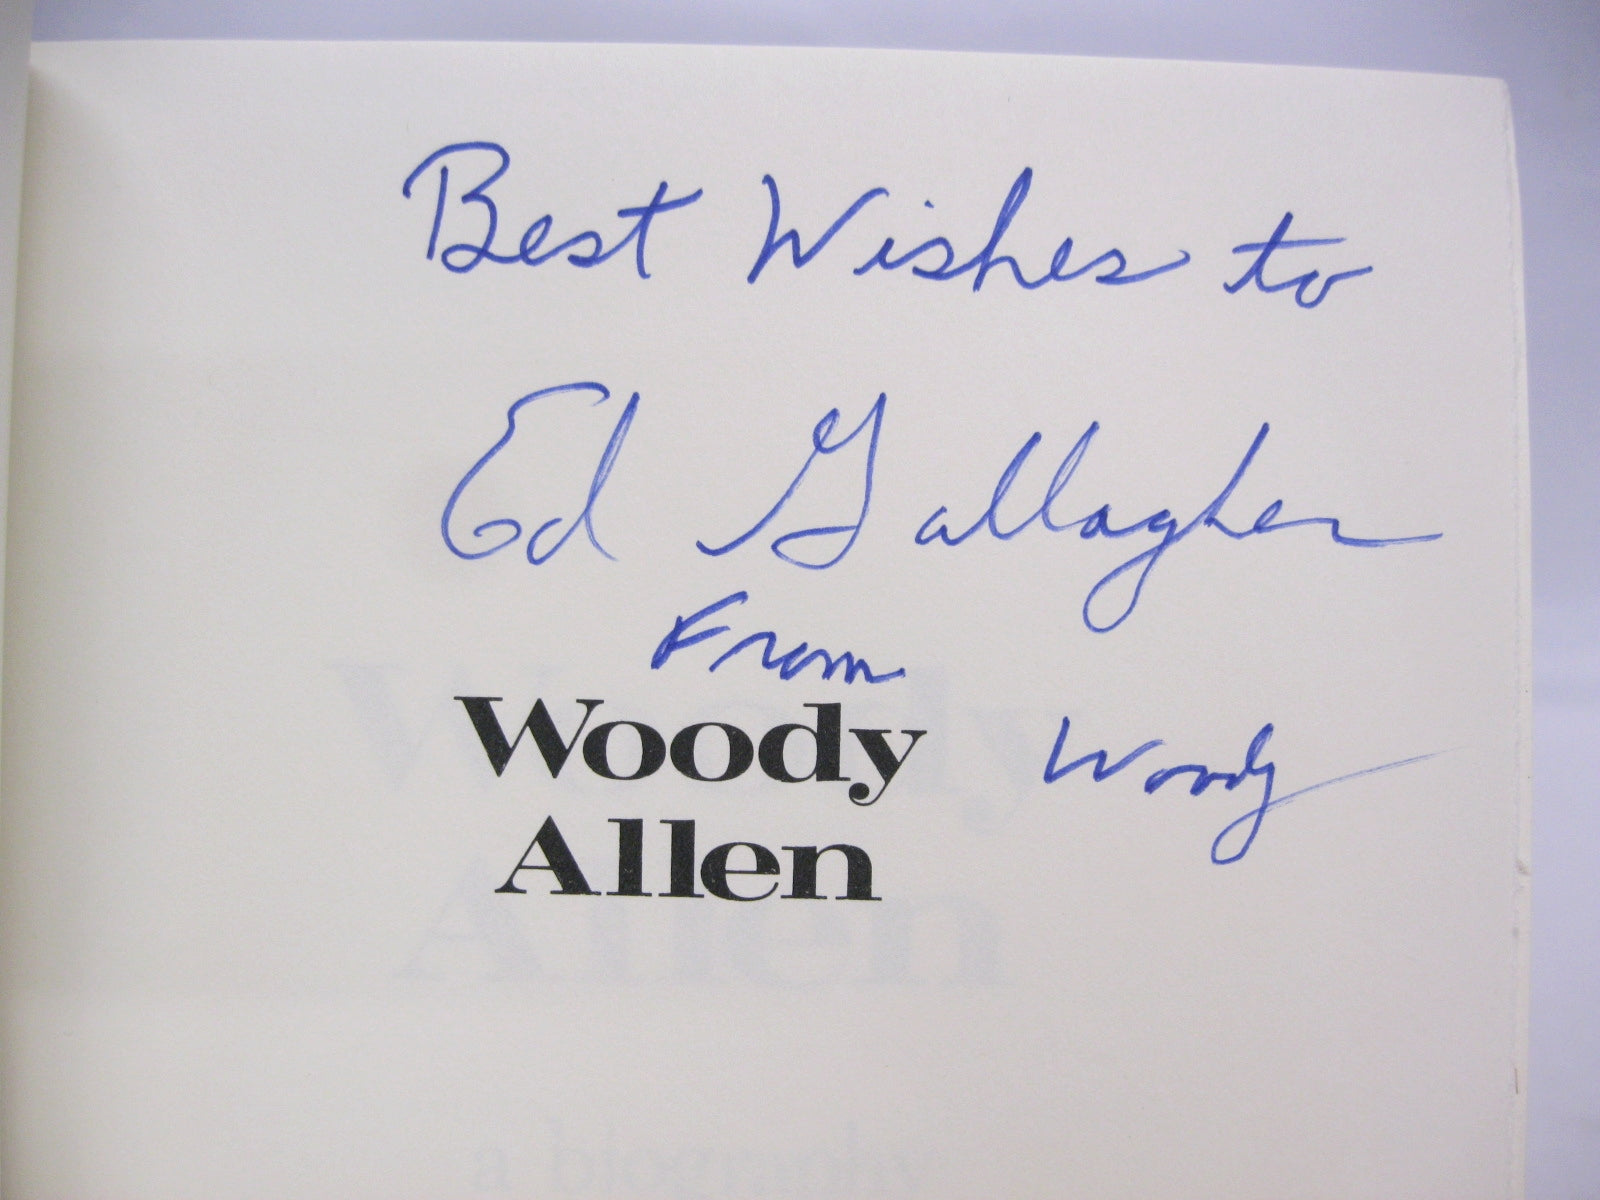 Best Wishes to
Ed Gallagher
From
Woody Woody
Allen